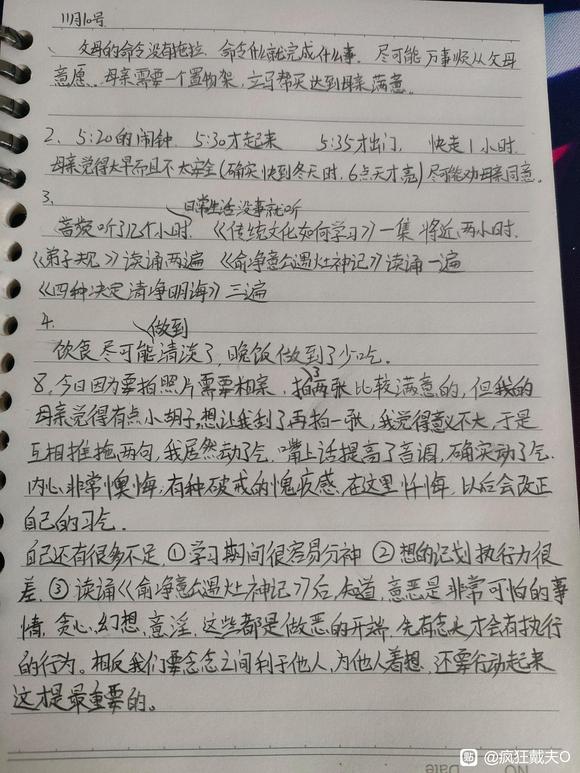 11月10号
、父母的命令没有拖拉，命令什么就完成什么事。尽可能万事顺从父母
意愿。母亲需要一个置物架，立马帮买达到母亲满意。
2、5:20的闹钟 5:30才起来 5:35才出门， 快走1小时，
母亲觉得太早而且不太安全(确实快到冬天时，6点天才亮)尽可能劝母亲同意。
3、
日常生活没事就听
音频听了12个小时，《传统文化如何学习》一集将近两小时，
《弟子规》读诵两遍 《俞净意公遇灶神记》读诵一遍
《四种决定清净明诲》三遍
4、
做到
饮食尽可能清淡了，晚饭做到了少吃。
3
8，今日因为要拍照片需要相亲，拍两张比较满意的，但我的
母亲觉得有点小胡子，想让我刮了再拍一张，我觉得意义不大，于是
互相推拖两句，我居然动了气，嘴上话提高了音调，确实动了气。
内心非常懊悔，有种破戒的愧疚感，在这里忏悔，以后会改正
自己的习气。
自己还有很多不足，①学习期间很容易分神 ②想的计划执行力很
差，③读诵《俞净意公遇灶神记》后，知道，意恶是非常可怕的事
情，贪心，幻想，意淫，这些都是做恶的开端，先有念头才会有执行
的行为。相反我们要念念之间利于他人，为他人着想，还要行动起来
这才是最重要的。
NO
Date
點 @疯狂戴夫O